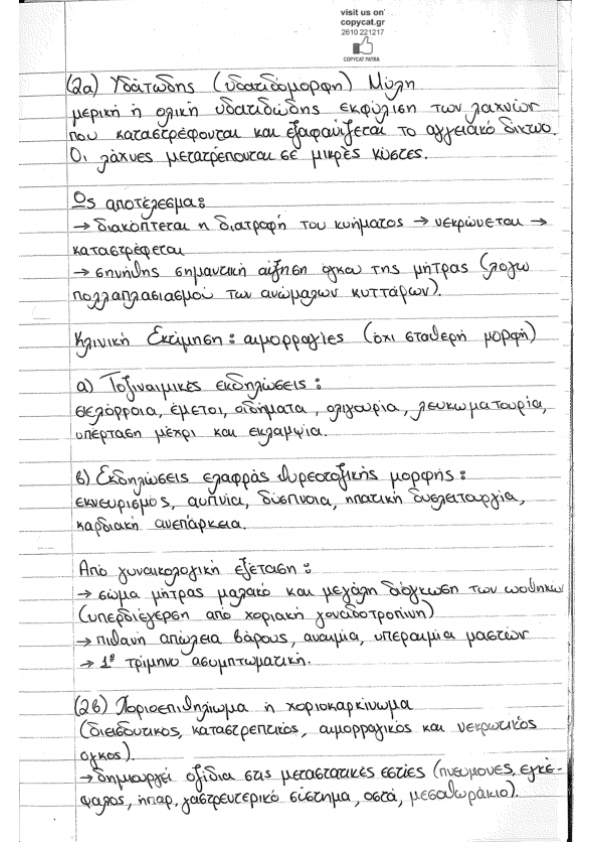 visit us on
copycat.gr
2610 221217
COPYCAT PATRA
(2α) Υδατώδης (υδατιδόμορφη) Μύλη
μερική ή ολική υδατιδώδης εκφύλιση των λαχνών
που καταστρέφονται και εξαφανίζεται το αγγειακό δίκτυο.
Οι λάχνες μετατρέπονται σε μικρές κύστες.
Ως αποτέλεσμα:
→ διακόπτεται η διατροφή του κυήματος → νεκρώνεται →
καταστρέφεται
→ σηνήθης σημαντική αύξηση όγκου της μήτρας (λόγω
πολλαπλασιασμού των ανώμαλων κυττάρων).
Κλινική Εκτίμηση: αιμορραγίες (όχι σταθερή μορφή)
α) Τοξιναιμικές εκδηλώσεις:
σιελόρροια, έμετοι, οιδήματα, ολιγουρία, λευκωματουρία,
υπέρταση μέχρι και εκλαμψία.
β) Εκδηλώσεις ελαφράς θυρεοτοξικής μορφής:
εκνευρισμός, αυπνία, δύσπνοια, ηπατική δυσλειτουργία,
καρδιακή ανεπάρκεια.
Από γυναικολογική εξέταση:
→ σώμα μήτρας μαλακό και μεγάλη διόγκωση των ωοθηκών
(υπερδιέγερση από χοριακή γοναδοτροπίνη)
→ πιθανή απώλεια βάρους, αναιμία, υπεραιμία μαστών
→ 1º τρίμηνο ασυμπτωματική.
(2β) Χοριοεπιθηλίωμα ή χοριοκαρκίνωμα
(διεισδυτικός, καταστρεπτικός, αιμορραγικός και νεκρωτικός
όγκος).
→ δημιουργεί οζίδια στις μεταστατικές εστίες (πνεύμονες, εγκέ-
φαλος, ήπαρ, γαστρεντερικό σύστημα, οστά, μεσοθωράκιο).